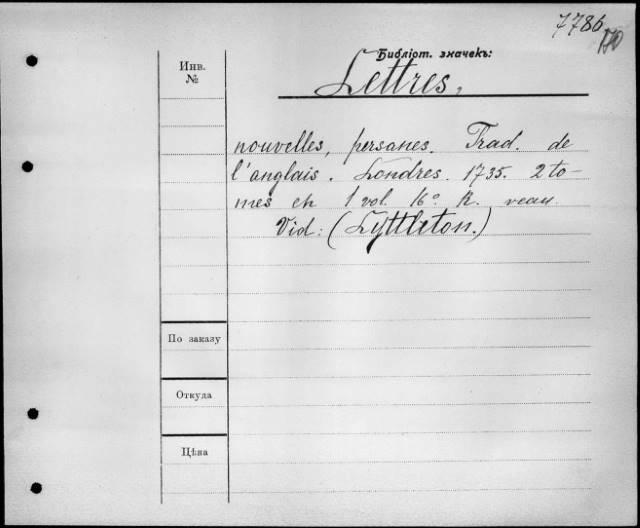 7786
170
Библіот. значекъ:
Инв.
№
Lettres,
nouvelles, persanes. Trad. de
l'anglais. Londres. 1735. 2 to-
mes en 1 vol. 16º. R. veau
Vid: (Lyttleton.)
По заказу
Откуда
Цѣна